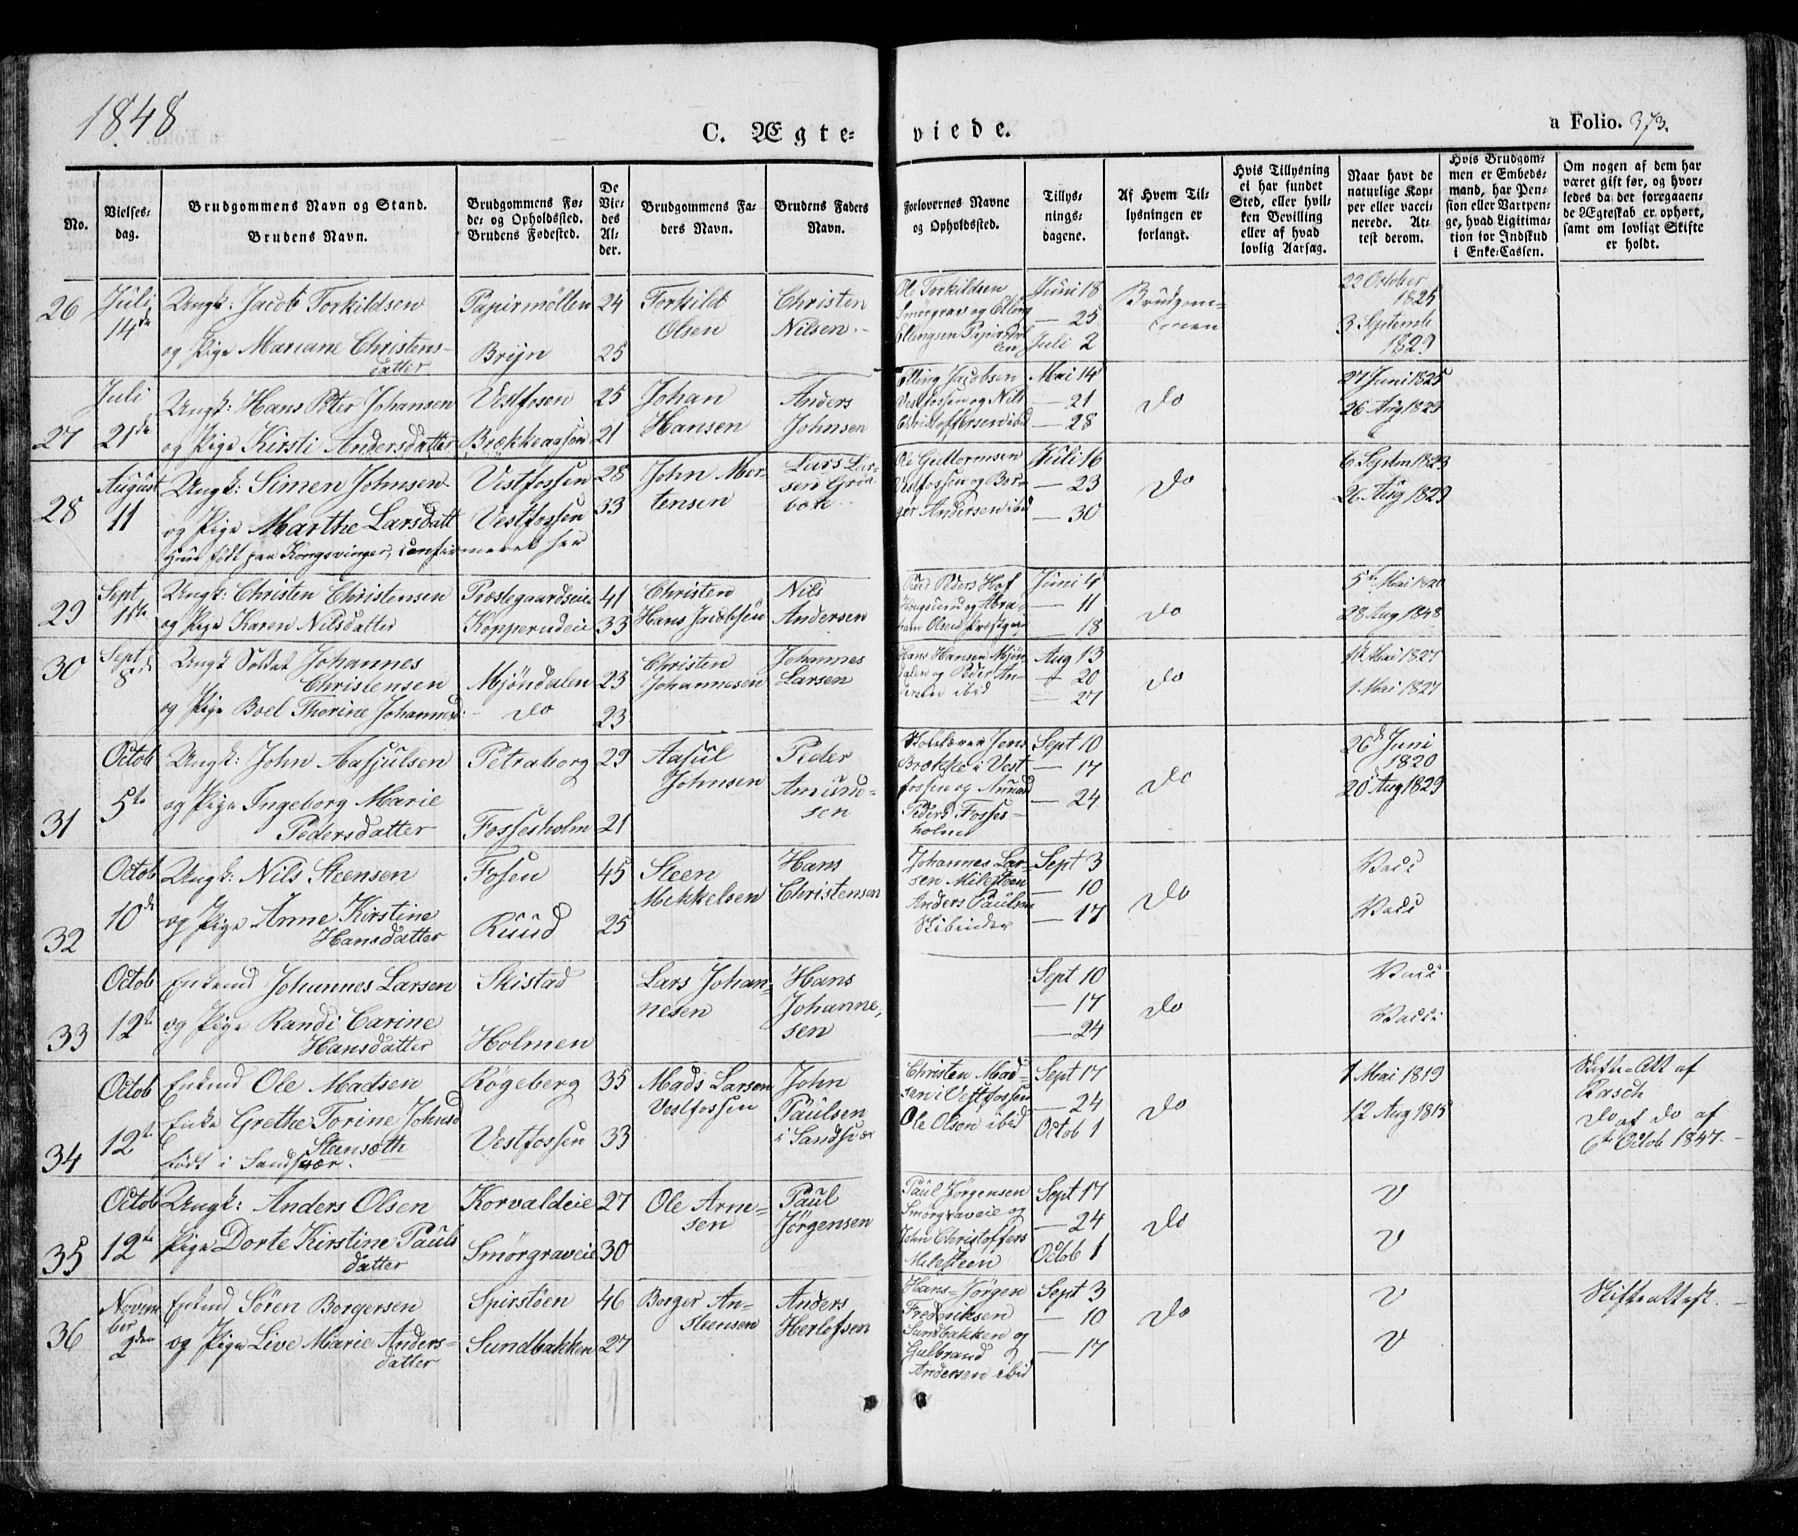 1848
C. Ægte- viede.
a Folio. 373.
No.
Vielses-
dag.
Brudgommens Navn og Stand.
Brudens Navn.
Brudgommens Fø-
de- og Opholdssted.
Brudens Fødested.
De
Vie-
des
Al-
der.
Brudgommens Fa-
ders Navn.
Brudens Faders
Navn.
Forlovernes Navne
og Opholdssted.
Tillys-
nings-
dagene.
Af Hvem Til-
lysningen er
forlangt.
Hvis Tillysning
ei har fundet
Sted, eller hvil-
ken Bevilling
eller af hvad
lovlig Aarsag.
Naar havt de
naturlige Kop-
per eller vacci-
nerede. At-
test derom.
Hvis Brudgom-
men er Embeds-
mand, har Pen-
sion eller Vartpen-
ge, hvad Ligitima-
tion for Indskud
i Enke-Cassen.
Om nogen af dem har
været gift før, og hvor-
ledes da det foregaaen-
de Ægteskab er ophørt,
samt om lovligt Skifte
er holdt.
26
Juli
14de
Ungk: Jacob Torkildsen
og Pige Mariane Christens-
datter
Papirmøllen
Brijn
24
25
Torkild
Olsen
Christen
Nilsen
Ol Torkildsen
Smørgrav og Elling
Ellingsen
Juni 18
— 25
Juli 2
Brudgom-
22 October
1825
3 Septemb
1829
27
Juli
21de
Ungk: Hans Peter Johansen
og Pige Kirsti Andersdatter
Vestfosen
Brækkeaasen
25
21
Johan
Hansen
Anders
Johnsen
Elling Jacobsen
Vestfossen og Nils
Christoffersen ibid
Mai 14
— 21
— 28
Do
27 Juni 1825
26 Aug 1829
28
August
11
Ungk: Simen Johnsen
og Pige Marthe Larsdatt
Hun født paa Kongsvinger, confirmeret her
Vestfossen
Vestfossen
28
33
John Mor-
tensen
Lars Lar-
sen
Ole Guttormsen
Vestfossen og Bor-
ger Andersen ibid
Juli 16
— 23
— 30
Do
6 Septem 1823
26 Aug 1829
29
Sept
1ste
Ungk: Christen Christensen
og Pige Karen Nilsdatter
Præstegaardseie
Kopperudeie
41
33
Christen
Hans Jacobsen
Nils
Andersen
Peder Peders Hof
og Abra-
ham Olsen
Juni 4
— 11
— 18
Do
5te Mai 1820
28 Aug 1848
30
Sept
8de
Ungk Soldat Johannes
Christensen
og Pige Boel Thorine Johannesd:
Mjøndalen
— Do
23
23
Christen
Johannesen
Johannes
Larsen
Hans Hansen Mjøn-
dalen og Peder An-
dersen ibid
Aug 13
— 20
— 27
Do
1 Mai 1827
1 Mai 1827
31
Octob
5te
Ungk: John Aasjulsen
og Pige Ingeborg Marie
Pedersdatter
Petraborg
Fossesholm
29
21
Aasul
Johnsen
Peder
Amund-
sen
Skolelærer Jens
Brække i Vest
fossen og Amund
Peders Fosses-
holm
Sept 10
— 17
— 24
Do
26de Juni
1820
20 Aug 1829
32
Octob
10de
Ungk: Nils Steensen
og Pige Anne Kirstine
Hansdatter
Fosen
Ruud
45
25
Steen
Mikkelsen
Hans
Christensen
Johannes Lar-
sen Milesteen
Anders Paulsen
Skibinder
Sept 3
— 10
— 17
Do
Vacc
Vacc
33
Octob
12te
Enkmd Johannes Larsen
og Pige Randi Carine
Hansdatter
Skistad
Holmen
Lars Johan-
nesen
Hans
Johanne-
sen
Sept 10
— 17
— 24
Do
Vacc
Vacc
34
Octob
12te
Enkmd Ole Madsen
Enke Grethe Torine Johnsd
Stensæth
født i Sandsvær.
Røgeberg
Vestfossen
35
33
Mads Larsen
Vestfossen
John
Paulsen
i Sandsvær
Christen Mad-
sen i Vestfossen
Ole Olsen ibid
Sept 17
— 24
Octob 1
Do
1 Mai 1819
12 Aug 1815
Skifte-Att af
Rasch
Do af Do af
6te Octob 1847.
35
Octob
12te
Ungk: Anders Olsen
Pige Dorte Kirstine Pauls
datter
Korvaldeie
Smörgraveie
27
30
Ole Arne-
sen
Paul
Jørgensen
Paul Jørgensen
Smørgraveie og
John Christoffers
Milesteen
Sept 17
— 24
Octob 1
Do
V
V
36
Novem
ber
2den
Enkmd Sören Borgersen
og Pige Live Marie Anders-
datter
Spirstöen
Sundbakken
46
27
Borger An-
stensen
Anders
Herlofsen
Hans Jørgen
Fredriksen
Sundbakken og
Gulbrand
Andersen ibid
Sept 3
— 10
— 17
Do
V
V
Skifteattest.